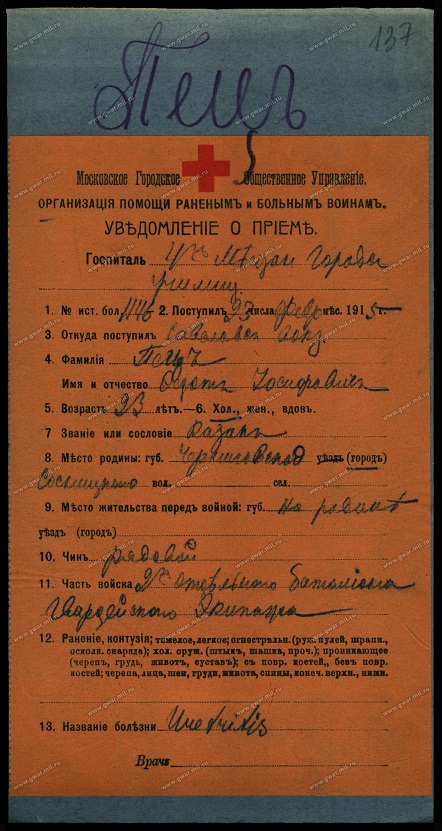 137
Пецъ
Московское Городское Общественное Управленіе.
ОРГАНИЗАЦІЯ ПОМОЩИ РАНЕНЫМЪ и БОЛЬНЫМЪ ВОИНАМЪ.
УВѢДОМЛЕНІЕ О ПРІЕМѢ.
Госпиталь
1. № ист. бол. 1146 2. Поступилъ 23 числа мѣс. 1915 г.
3. Откуда поступилъ
4. Фамилія Пецъ
Имя и отчество Іосифовичъ
5. Возрастъ 23 лѣтъ.—6. Хол., жен., вдов.
7 Званіе или сословіе Казакъ
8. Мѣсто родины: губ. Черниговской уѣздъ (городъ)
Сосницкаго вол. сел.
9. Мѣсто жительства передъ войной: губ. на родинѣ
уѣздъ (городъ)
10. Чинъ рядовой
11. Часть войска 2й отдѣльнаго баталіона
Гвардейскаго Экипажа
12. Раненіе, контузія; тяжелое, легкое; огнестрѣльн. (руж. пулей, шрапн.,
осколк. снаряда); хол. оруж. (штыкъ, шашка, проч.); проникающее
(черепъ, грудь, животъ, суставъ); съ повр. костей, безъ повр.
костей; черепа, лица, шеи, груди, живота, спины, конеч. верхн., нижн.
13. Названіе болѣзни Uretritis
Врачъ
www.gwar.mil.ru